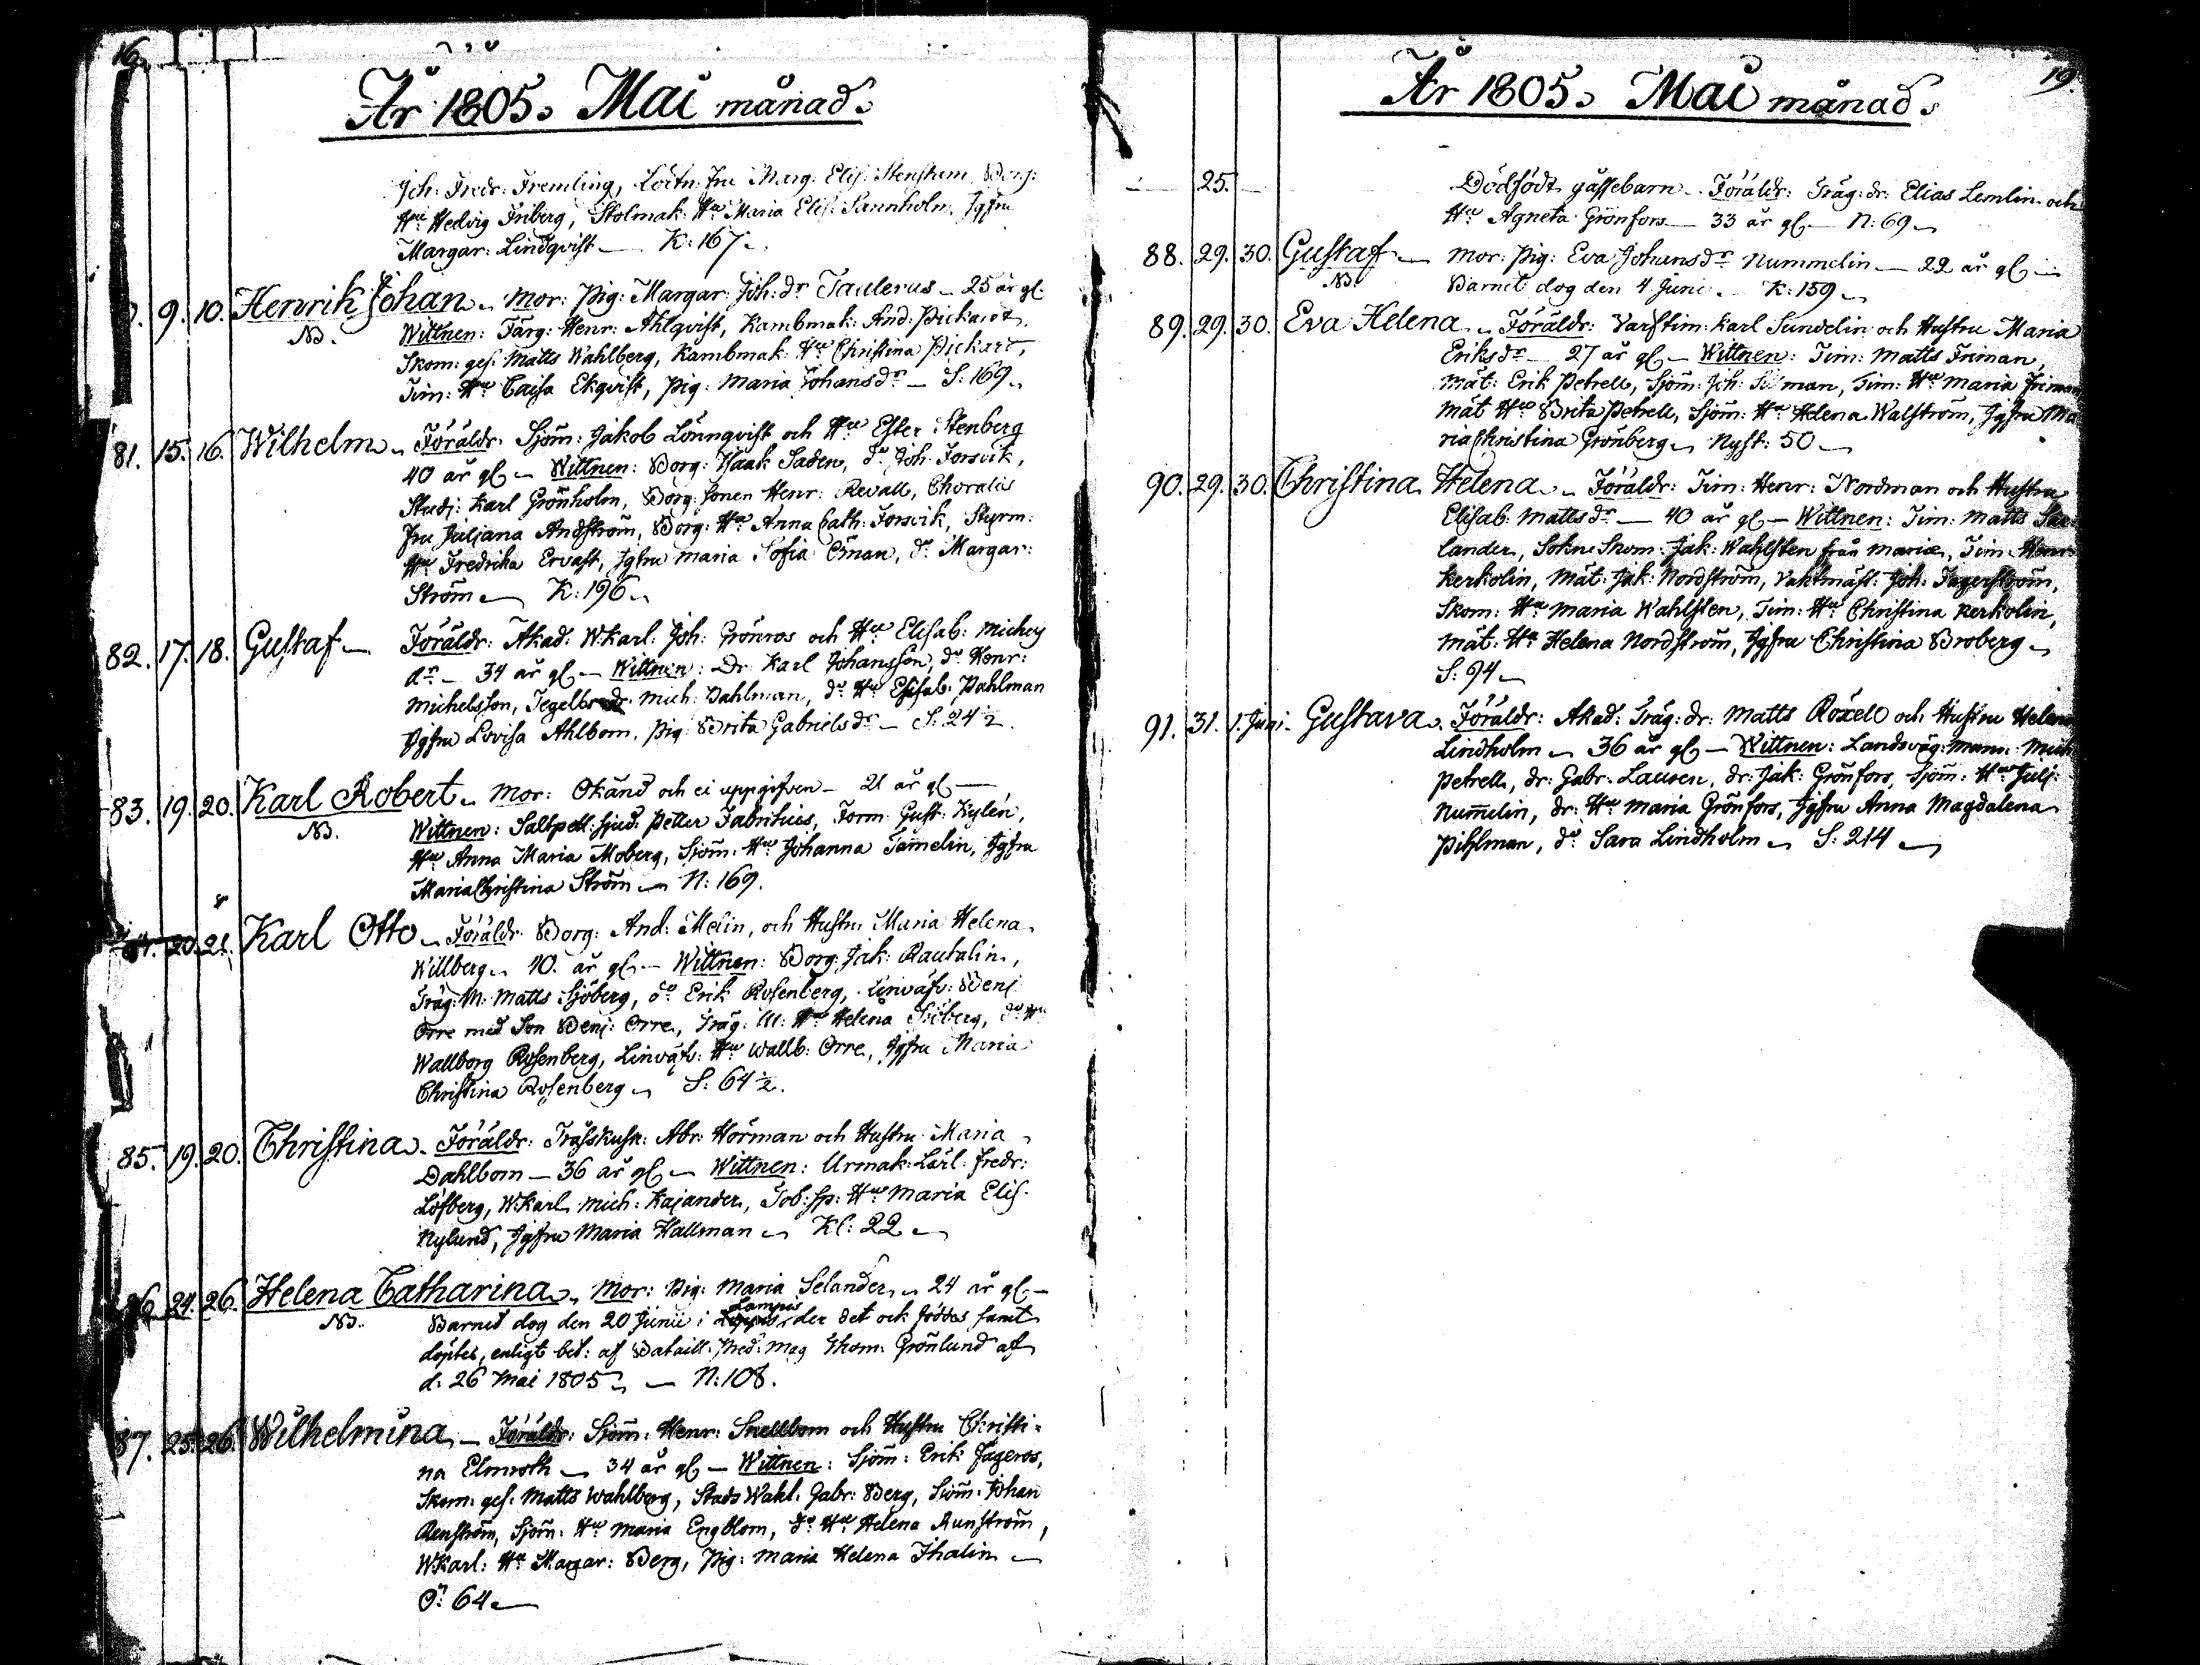 16.
År 1805. Mai månad.
Joh: Fredr: Fremling, Löitn: Fru Marg: Elis: Stenstam, Borg:
Hu Hedvig Friberg, Stolmak: Hu Maria Elis: Sannholm, Jgfru
Margar: Lindqvist — K: 167.
9. 10. Henrik Johan. Mor: Pig: Margar: Joh: dr Taulerus — 25 år gl.
NB. Wittnen: Färg: Henr: Ahlqvist, Kambmak: And: Pickardt,
Skom: ges: Matts Wahlberg, Kambmak: Hu Christina Pickart,
Tim: Hu Caisa Ekqvist, Pig: Maria Johansdr — S: 169.
81. 15. 16. Wilhelm. Föräldr: Sjöm: Jakob Lönnqvist och Hu Ester Stenberg
40 år gl — Wittnen: Borg: Isaak Saden, do Joh: Forsvik,
Studi: Karl Grönholm, Borg: sonen Henr: Revall, Choralis
Fru Juliana Andström, Borg: Hu Anna Cath: Forsvik, Styrm:
Hu Fredrika Ervast, Jgfru Maria Sofia Öman, do Margar:
Ström — K: 196.
82. 17. 18. Gustaf — Föräldr: Akad: Wkarl: Joh: Grönros och Hu Elisab: Michels
dr — 34 år gl — Wittnen: Dr: Karl Johansson, do Henr:
Michelsson, Tegelbr: dr: Mich: Dahlman, do Hu Elisab: Dahlman
Jgfru Lovisa Ahlbom, Pig: Brita Gabrielsdr — S: 24 ½.
83. 19. 20. Karl Robert. Mor: Okänd och ei uppgifven — 21 år gl —
NB. Wittnen: Saltpett: sjud: Petter Fabritius, Form: Gust: Kylén,
Hu Anna Maria Moberg, Sjöm: Hu Johanna Tam̄elin, Jgfru
Maria Christina Ström — N: 169.
84. 20. 21. Karl Otto. Föräldr: Borg: And: Melin, och Hustru Maria Helena
Willberg — 40. år gl — Wittnen: Borg: Jak: Rautalin,
Träg: M: Matts Sjöberg, do Erik Rosenberg, Linväfv: Benj:
Orre med Son Benj: Orre, Träg: M: Hu Helena Sjöberg, do Hu
Wallborg Rosenberg, Linväfv: Hu Wallb: Orre, Jgfru Maria
Christina Rosenberg — S: 64 ½.
85. 19. 20. Christina. Föräldr: Abr: Hörman och Hustru Maria
Dahlbom — 36 år gl — Wittnen: Urmak: Lärl: Fredr:
Löfberg, Wkarl Mich: Kajander, Tob: sp: Hu Maria Elis:
Nylund, Jgfru Maria Hallman — Kl: 22 —
86. 24. 26. Helena Catharina. Mor: Pig: Maria Selander — 24 år gl —
NB. Barnet dog den 20 Junii i Lampis der det ock föddes samt
döptes, enligt bet: af Bataill: Pred: Mag Thom: Grönlund af
d. 26 Mai 1805 — N: 108.
87. 25. 26. Wilhelmina — Föräldr: Sjöm: Henr: Snellbom och Hustru Christi-
na Elmroth — 34 år gl — Wittnen: Sjöm: Erik Fageros,
Skom: ges: Matts Wahlberg, Stads Wakt: Gabr: Berg, Sjöm: Johan
Renström, Sjöm: Hu Maria Engblom, do Hu Helena Runström,
Wkarl: Hu Margar: Berg, Pig: Maria Helena Thalin —
64 —
19.
År 1805. Mai månad.
— 25. — Dödfödt gåssebarn. Föräldr: Träg: dr: Elias Lemlin och
Hu Agneta Grönfors — 33 år gl — N: 69 —
88. 29. 30. Gustaf — Mor: Pig: Eva Johansdr Nummelin — 22 år gl —
NB. Barnet dog den 4 Juni — K: 159 —
89. 29. 30. Eva Helena. Föräldr: Varfstim: Karl Sundelin och Hustru Maria
Eriksdr — 27 år gl — Wittnen: Tim: Matts Friman,
Mät: Erik Petrell, Sjöm: Joh: Tim: Hu Maria Friman
Mät Hu Brita Petrell, Sjöm: Hu Helena Walström, Jgfru Ma
ria Christina Grönberg — Nyst: 50 —
90. 29. 30. Christina Helena. Föräldr: Tim: Henr: Nordman och Hustru
Elisab: Mattsdr — 40 år gl — Wittnen: Tim: Matts
lander, Sokne Skom: Jak: Wahlsten från Mariæ, Tim: Henr:
Kerkolin, Mät: Jak: Nordström, Vaktmäst: Joh: Jagerström,
Skom: Hu Maria Wahlsten, Tim: Hu Christina Kerkolin,
Mät: Hu Helena Nordström, Jgfru Christina Broberg —
S: 94 —
91. 31. 1. Juni. Gustava. Föräldr: Akad: Träg: dr: Matts Roxell och Hustru Helena
Lindholm — 36 år gl — Wittnen: Landsväg: Mann: Mich:
Petrell, dr: Gabr: Lausen, dr: Jak: Grönfors, Sjöm: Hu Julj:
Num̄elin, dr: Hu Maria Grönfors, Jgfru Anna Magdalena
Pihlman, do Sara Lindholm — S: 214 —